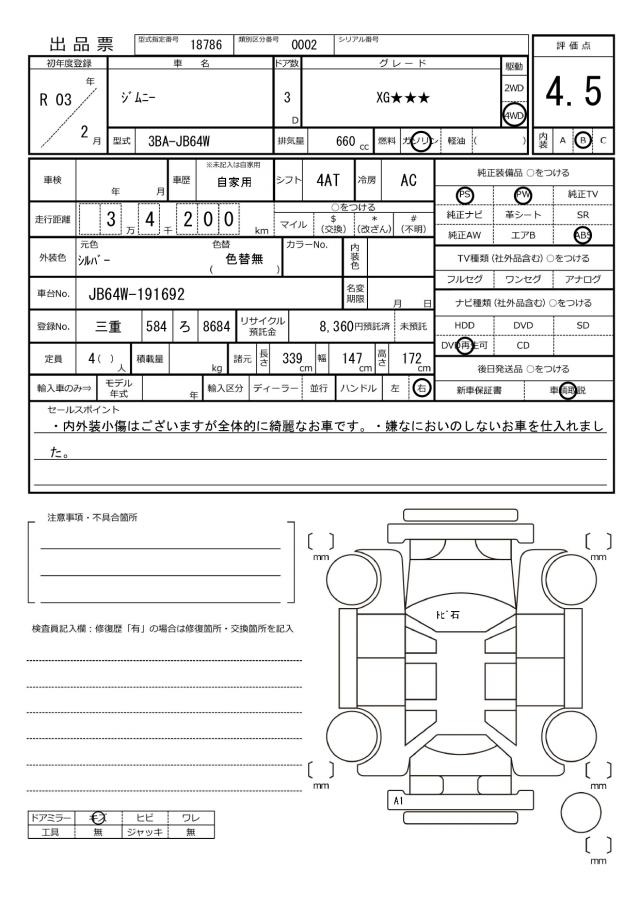 出品票
型式指定番号 18786 類別区分番号 0002 シリアル番号
評価点
4.5
内装 A B C
初年度登録 車名 ドア数 グレード 駆動
R 03 年 2 月
ｼﾞﾑﾆｰ 3 D XG★★★ 2WD 4WD
型式 3BA-JB64W 排気量 660 cc 燃料 ガソリン 軽油 ( )
車検 年 月 車歴 ※未記入は自家用 自家用 シフト 4AT 冷房 AC
走行距離 3 万 4 千 2 0 0 km
○をつける
マイル $ (交換) * (改ざん) # (不明)
外装色 元色 ｼﾙﾊﾞｰ 色替 ( 色替無 ) カラーNo. 内装色
車台No. JB64W-191692 名変期限 月 日
登録No. 三重 584 ろ 8684 リサイクル預託金 8,360円預託済 未預託
定員 4( ) 人 積載量 kg 諸元 長さ 339 cm 幅 147 cm 高さ 172 cm
輸入車のみ⇒ モデル年式 年 輸入区分 ディーラー 並行 ハンドル 左 右
純正装備品 ○をつける
PS PW 純正TV
純正ナビ 革シート SR
純正AW エアB ABS
TV種類 (社外品含む) ○をつける
フルセグ ワンセグ アナログ
ナビ種類 (社外品含む) ○をつける
HDD DVD SD
DVD再生可 CD
後日発送品 ○をつける
新車保証書 車輌取説
セールスポイント
・内外装小傷はございますが全体的に綺麗なお車です。・嫌なにおいのしないお車を仕入れまし
た。
注意事項・不具合箇所
検査員記入欄：修復歴「有」の場合は修復箇所・交換箇所を記入
ドアミラー キズ ヒビ ワレ
工具 無 ジャッキ 無
〔 〕 mm
〔 〕 mm
ﾄﾋﾞ石
〔 〕 mm
〔 〕 mm
A1
〔 〕 mm